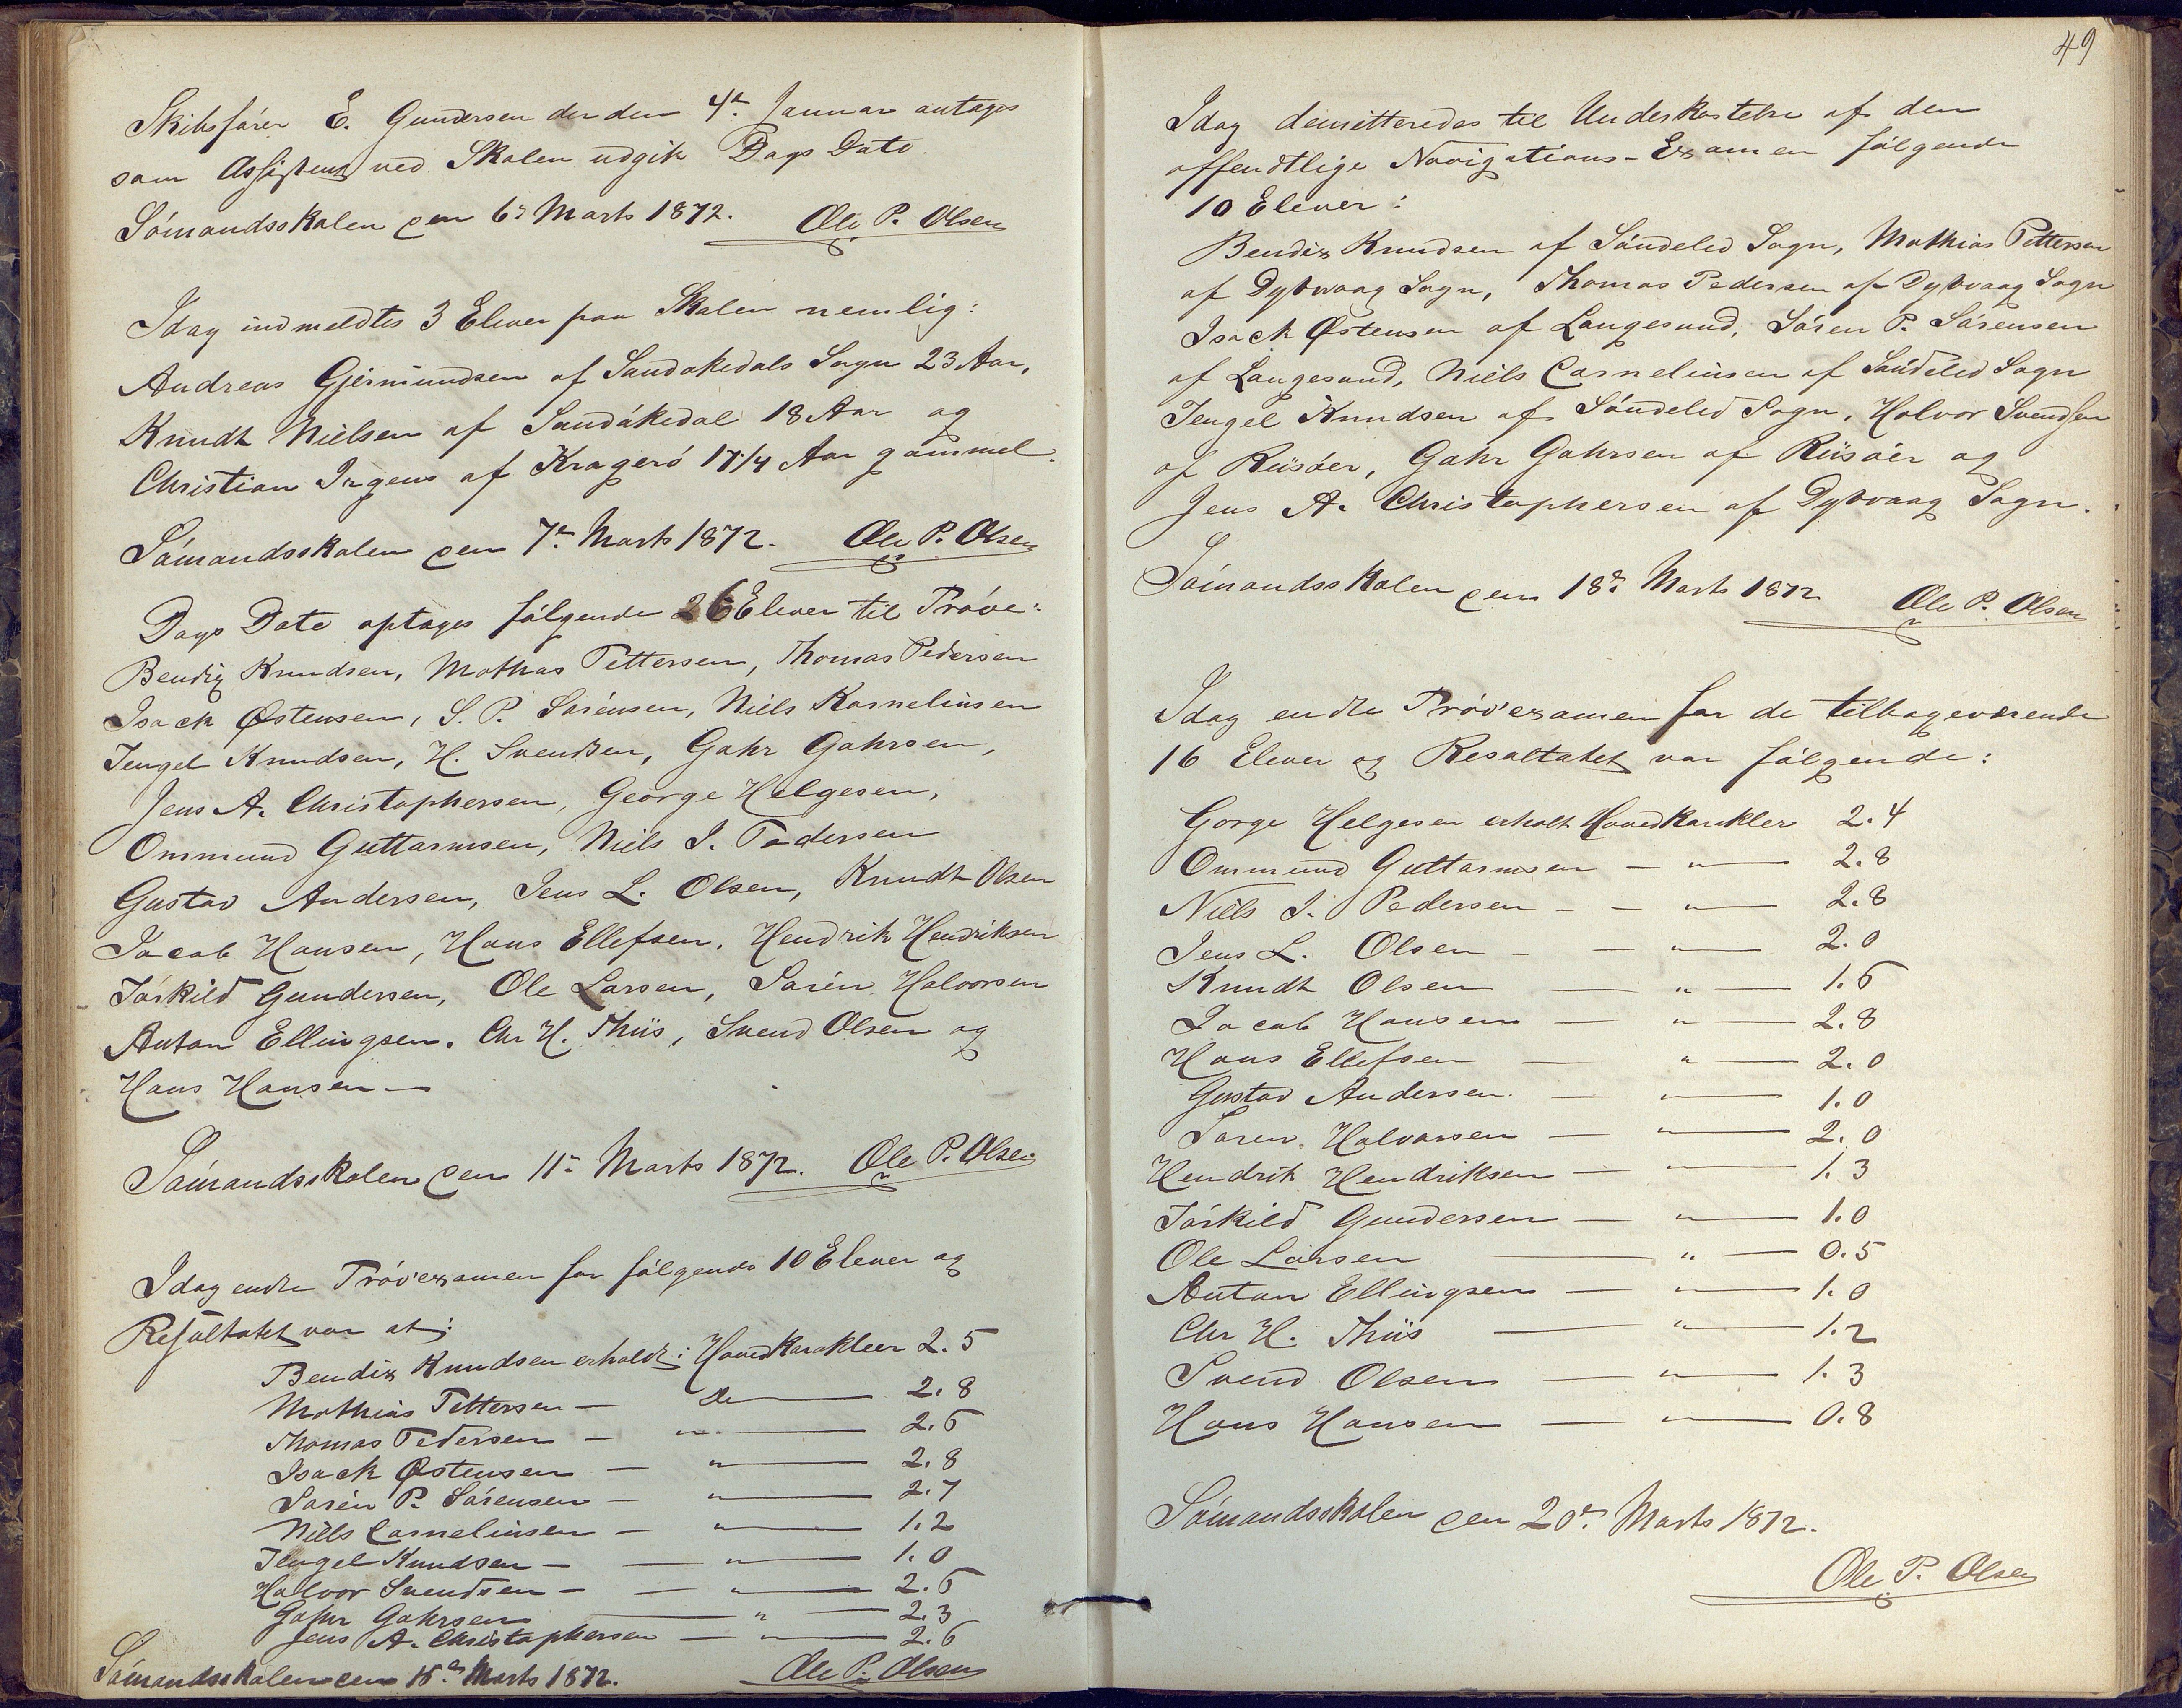 Skibsfører E. Gundersen der den 4de Januar antages
som Assistent ved Skolen udgik Dags Dato.
Sømandsskolen den 6te Marts 1872. Ole P. Olsen
Idag indmeldtes 3 Elever paa Skolen nemlig:
Andreas Gjermundsen af Sandøkedals Sogn 23 Aar,
Knudt Nielsen af Sandøkedal 18 Aar og
Christian Irgens af Kragerø 17 1/4 Aar gammel.
Sømandsskolen den 7de Marts 1872. Ole P. Olsen
Dags Dato optages følgende 26 Elever til Prøve:
Bendix Knudsen, Mathas Pettersen, Thomas Pedersen
Isack Østensen, S. P. Sørensen, Niels Kornelinsen
Tengel Knudsen, H. Svendsen, Gahr Gahrsen,
Jens A. Christophersen, George Helgesen,
Ommund Guttormsen, Niels J. Pedersen
Gustav Andersen, Jens L. Olsen, Knudt Olsen
Jacob Hansen, Hans Ellefsen, Hendrik Hendriksen
Torkild Gundersen, Ole Larsen, Søren Halvorsen
Anton Ellingsen, Chr H. Thiis, Svend Olsen og
Hans Hansen —
Sømandsskolen den 11te Marts 1872. Ole P. Olsen
Idag endte Prøvexamen for følgende 10 Elever og
Resultatet var at:
Bendix Knudsen erholdt: Hovedkarakteer 2.5
Mathias Pettersen — Do — 2.8
Thomas Pedersen — " — 2.6
Isack Østensen — " — 2.8
Søren P. Sørensen — " — 2.7
Niels Cornelinsen — " — 1.2
Tengel Knudsen — — " — 1.0
Halvor Svendsen — — " — 2.6
Gahr Gahrsen — " — 2.3
Jens A. Christophersen — " — 2.6
Sømandsskolen den 18de Marts 1872. Ole P. Olsen
49
Idag demitteredes til Underkastelse af den
offendtlige Navigations-Examen følgende
10 Elever:
Bendix Knudsen af Søndeled Sogn, Mathias Pettersen
af Dybvaag Sogn, Thomas Pedersen af Dybvaag Sogn
Isack Østensen af Langesund, Søren P. Sørensen
af Langesund, Niels Cornelinsen af Søndeled Sogn
Tengel Knudsen af Søndeled Sogn, Halvor Svendsen
af Riisøer, Gahr Gahrsen af Riisøer og
Jens A. Christophersen af Dybvaag Sogn.
Sømandsskolen den 18de Marts 1872 Ole P. Olsen
Idag endte Prøvexamen for de tilbageværende
16 Elever og Resultatet var følgende:
Gorge Helgesen erholt Hovedkarakter 2.4
Ommund Guttormsen — " — 2.8
Niels J. Pedersen - — " — 2.8
Jens L. Olsen - — " — 2.0
Knudt Olsen — " — 1.6
Jacob Hansen — " — 2.8
Hans Ellefsen — " — 2.0
Gustav Andersen. — " — 1.0
Søren Halvorsen — " — 2.0
Hendrik Hendriksen — " — 1.3
Torkild Gundersen — " — 1.0
Ole Larsen — " — 0.5
Anton Ellingsen — " — 1.0
Chr H. Thiis — " — 1.2
Svend Olsen — " — 1.3
Hans Hansen — " — 0.8
Sømandsskolen den 20de Marts 1872.
Ole P. Olsen